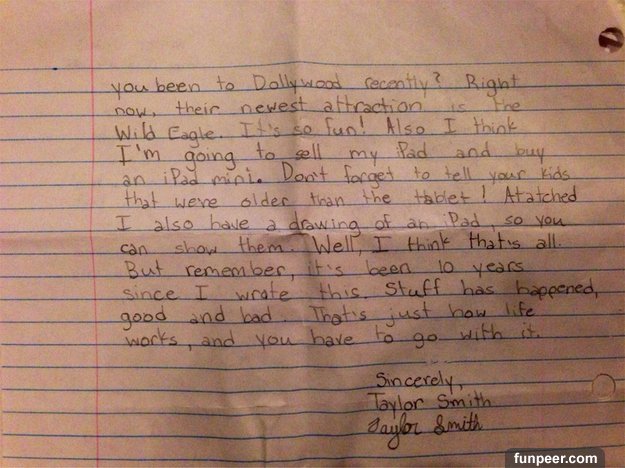 you been to Dollywood recently? Right
now, their newest attraction is the
Wild Eagle. It's so fun! Also I think
I'm going to sell my iPad and buy
an iPad mini. Don't forget to tell your kids
that we're older than the tablet! Atatched
I also have a drawing of an iPad, so you
can show them. Well, I think that's all.
But remember, it's been 10 years
since I wrote this. Stuff has happened,
good and bad. That's just how life
works, and you have to go with it.
Sincerely,
Taylor Smith
Taylor Smith
funpeer.com